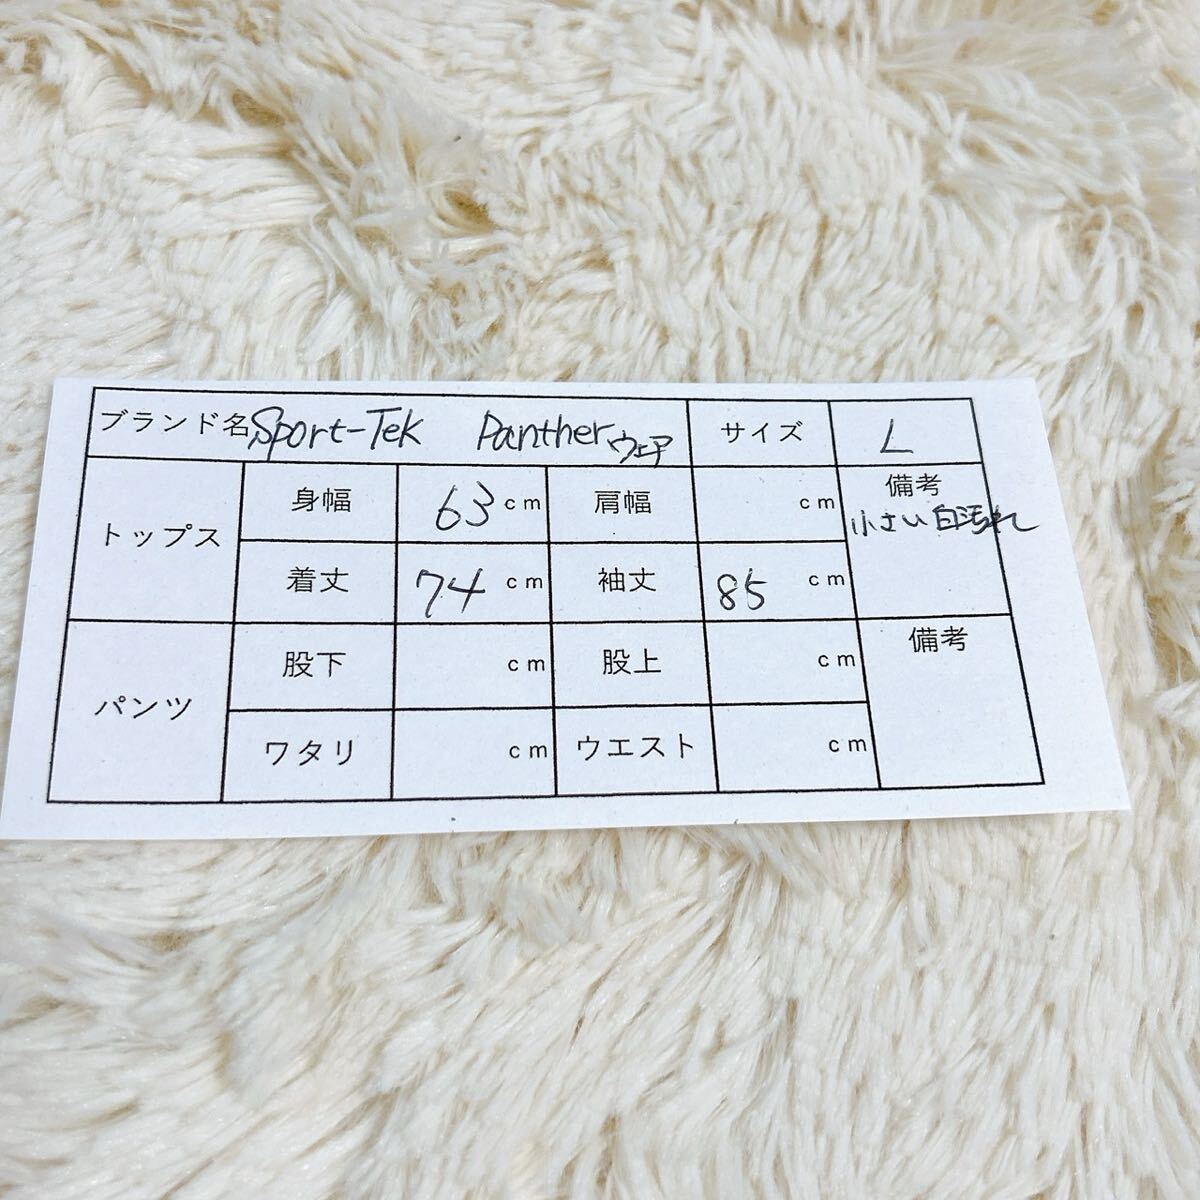 ブランド名 Sport-Tek Panther ウェア サイズ L
トップス 身幅 63 cm 肩幅 cm 備考
小さい白汚れ
着丈 74 cm 袖丈 85 cm
パンツ 股下 cm 股上 cm 備考
ワタリ cm ウエスト cm